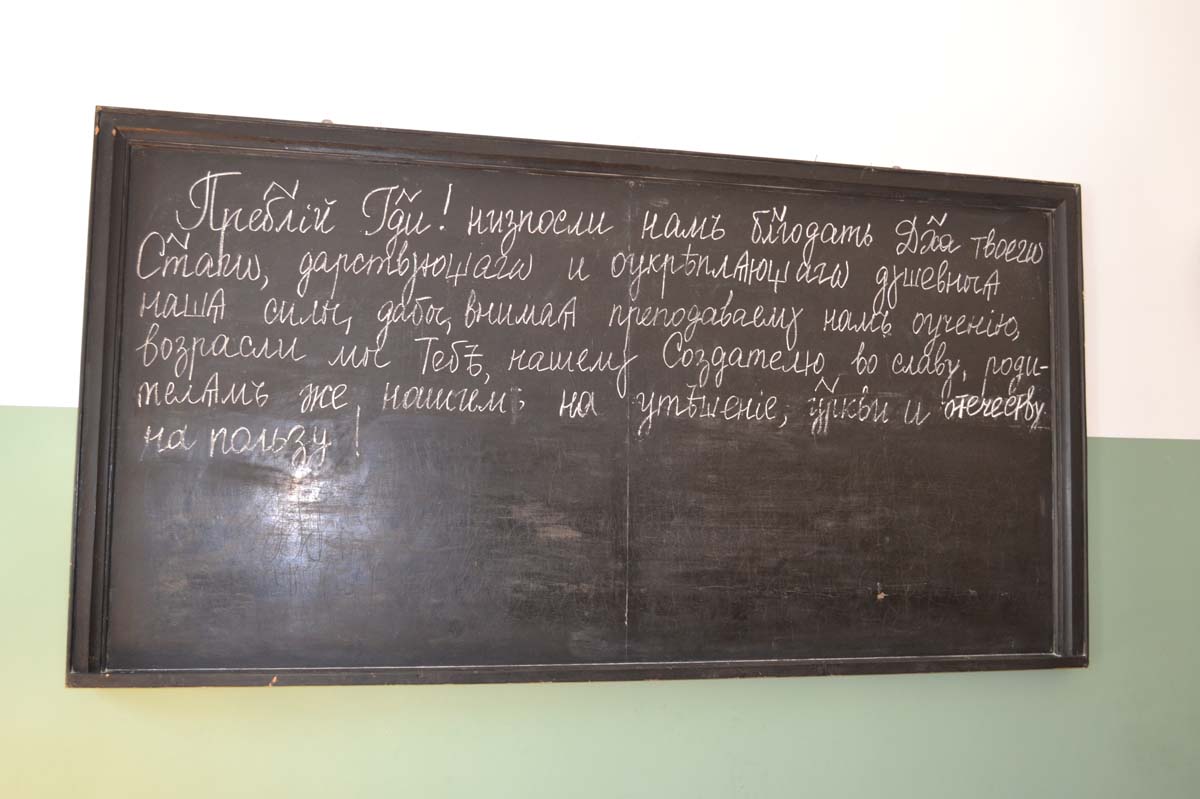 Пребл҃їй Гд҃и! низпосли намъ бл҃годать Дх҃а твоегѡ
Ст҃агѡ, дарствꙋющагѡ и оукрѣплѧющагѡ дꙋшевныѧ
нашѧ силы, дабы, внимаѧ преподаваемꙋ намъ оученїю,
возрасли мы Тебѣ, нашемꙋ Создателю, во славу, роди-
телѧмъ же нашымъ на утѣшенїе, цр҃кви и ѿечеству
на пользу!